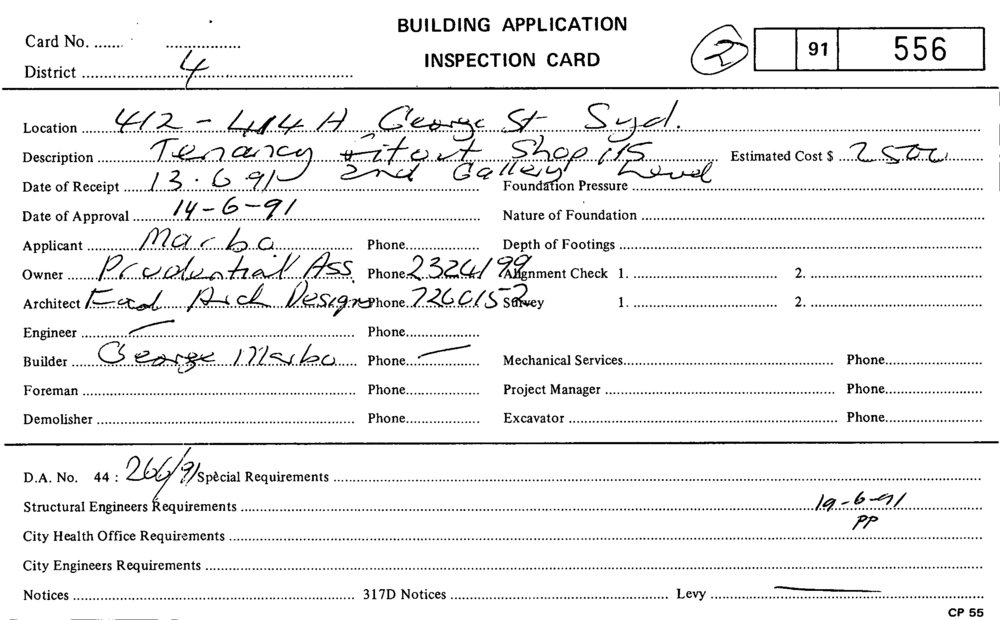 BUILDING APPLICATION
INSPECTION CARD
Card No. ....... ..................
District ........ 4 ........
② 91 556
Location ........ 412 - 414 H George St Syd.
Description ........ Tenancy fitout Shop 115 Estimated Cost $ ... 2500
2nd Gallery Level
Date of Receipt ........ 13.6 91 Foundation Pressure ........
Date of Approval ........ 14-6-91 Nature of Foundation ........
Applicant ........ Marbo Phone........ Depth of Footings ........
Owner ........ Prudential Ass Phone 2324199 Alignment Check 1. ........ 2. ........
Architect Food Arch Designs Phone. 7260152 Survey 1. ........ 2. ........
Engineer ........ — Phone........
Builder ........ George Marbo Phone... — Mechanical Services........ Phone........
Foreman ........ Phone........ Project Manager ........ Phone........
Demolisher ........ Phone........ Excavator ........ Phone........
D.A. No. 44 : 266/91 Special Requirements ........
Structural Engineers Requirements ........ 19-6-91
PP
City Health Office Requirements ........
City Engineers Requirements ........
Notices ........ 317D Notices ........ Levy ........ —
CP 55